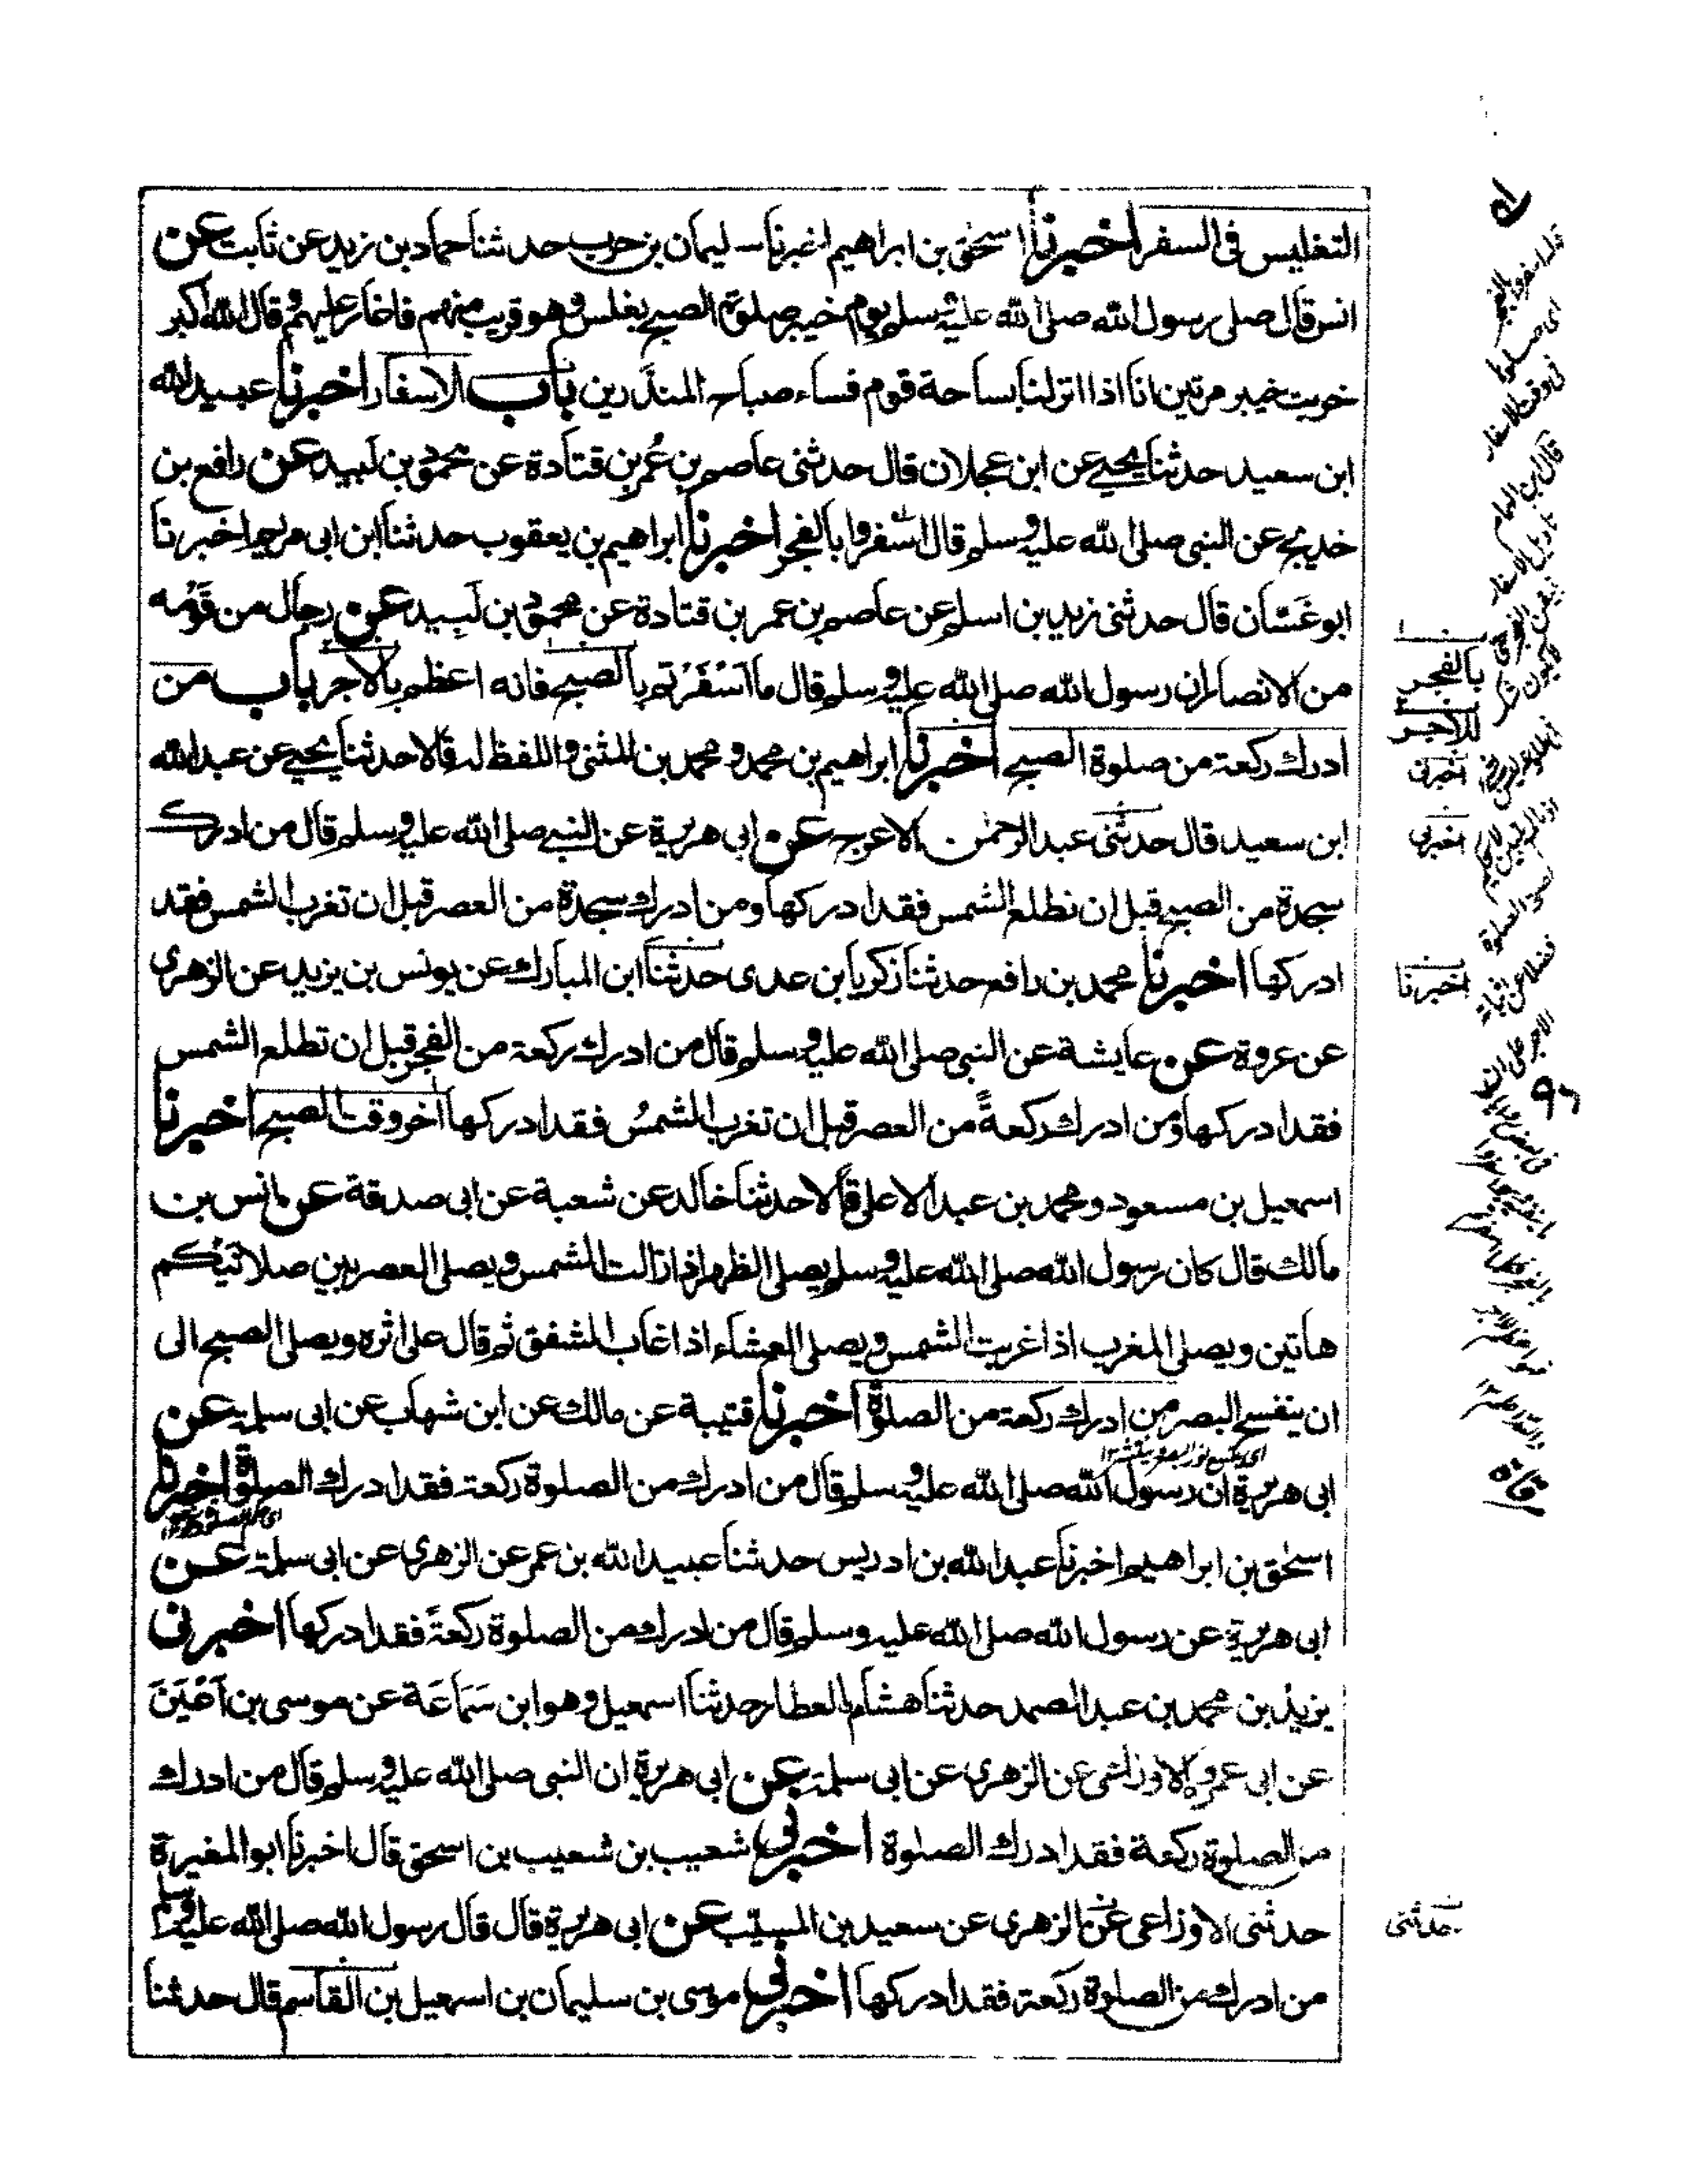 التغليس في السفر اخبرنا اسحق بن ابراهيم اخبرنا سليمان بن حرب حدثنا حماد بن زيد عن ثابت عن
انس قال صلى رسول الله صلى الله عليه وسلم يوم خيبر صلوة الصبح بغلس وهو قريب منهم فاغار عليهم وقال الله اكبر
خربت خيبر مرتين انا اذا انزلنا بساحة قوم فساء صباح المنذرين باب الاسفار اخبرنا عبيد الله
ابن سعيد حدثنا يحيى عن ابن عجلان قال حدثني عاصم بن عُمر بن قتادة عن محمود بن لبيد عن رافع بن
خديج عن النبي صلى الله عليه وسلم قال اسفروا بالفجر اخبرنا ابراهيم بن يعقوب حدثنا ابن ابي مريم اخبرنا
ابو غَسّان قال حدثني زيد بن اسلم عن عاصم بن عمر بن قتادة عن محمود بن لَبيد عن رجال من قَومه
من الانصار ان رسول الله صلى الله عليه وسلم قال ما اَسْفَرْتم بالصبح فانه اعظم بالاجر باب من
ادرك ركعة من صلوة الصبح اخبرنا ابراهيم بن محمد و محمد بن المثنى واللفظ له قالا حدثنا يحيى عن عبد الله
ابن سعيد قال حدثني عبد الرحمٰن الاعرج عن ابي هريرة عن النبي صلى الله عليه وسلم قال من ادرك
سجدة من الصبح قبل ان تطلع الشمس فقد ادركها ومن ادرك سجدة من العصر قبل ان تغرب الشمس فقد
ادركها اخبرنا محمد بن رافع حدثنا زكريا بن عدى حدثنا ابن المبارك عن يونس بن يزيد عن الزهري
عن عروة عن عايشة عن النبي صلى الله عليه وسلم قال من ادرك ركعة من الفجر قبل ان تطلع الشمس
فقد ادركها ومن ادرك ركعةً من العصر قبل ان تغرب الشمسُ فقد ادركها اخر وقت الصبح اخبرنا
اسمعيل بن مسعود و محمد بن عبد الاعلى قالا حدثنا خالد عن شعبة عن ابي صدقة عن انس بن
مالك قال كان رسول الله صلى الله عليه وسلم يصلي الظهر اذا زالت الشمس ويصلي العصر بين صلاتيكم
هاتين ويصلي المغرب اذا غربت الشمس ويصلي العشاء اذا غاب الشفق ثم قال على اثره ويصلي الصبح الى
ان ينفسح البصر من ادرك ركعة من الصلوة اخبرنا قتيبة عن مالك عن ابن شهاب عن ابي سلمة عن
ابي هريرة ان رسول الله صلى الله عليه وسلم قال من ادرك من الصلوة ركعة فقد ادرك الصلوة اخبرنا
اسحٰق بن ابراهيم اخبرنا عبد الله بن ادريس حدثنا عبيد الله بن عمر عن الزهري عن ابي سلمة عن
ابي هريرة عن رسول الله صلى الله عليه وسلم قال من ادرك من الصلوة ركعةً فقد ادركها اخبرني
يزيد بن محمد بن عبد الصمد حدثنا هشام العطار حدثنا اسمعيل وهو ابن سَمَاعَة عن موسى بن اَعْيَنَ
عن ابي عمرو الاوزاعي عن الزهري عن ابي سلمة عن ابي هريرة ان النبي صلى الله عليه وسلم قال من ادرك
من الصلوة ركعة فقد ادرك الصلوة اخبرني شعيب بن شعيب بن اسحق قال اخبرنا ابو المغيرة
حدثني الاوزاعي عن الزهري عن سعيد بن المسيّب عن ابي هريرة قال قال رسول الله صلى الله عليه وسلم
من ادرك من الصلوة ركعة فقد ادركها اخبرني موسى بن سليمان بن اسمعيل بن القاسم قال حدثنا
بالفجر
للاجر
اخبرني
اخبرني
اخبرنا
حدثني